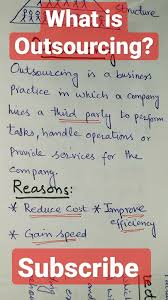 What is
Outsourcing?
Structure
Outsourcing is a business
Practice in which a company
hires a third party to perform
tasks, handle operations or
Provide services for the
company.
Reasons:
* Reduce Cost * Improve
efficiency
* Gain speed
Subscribe